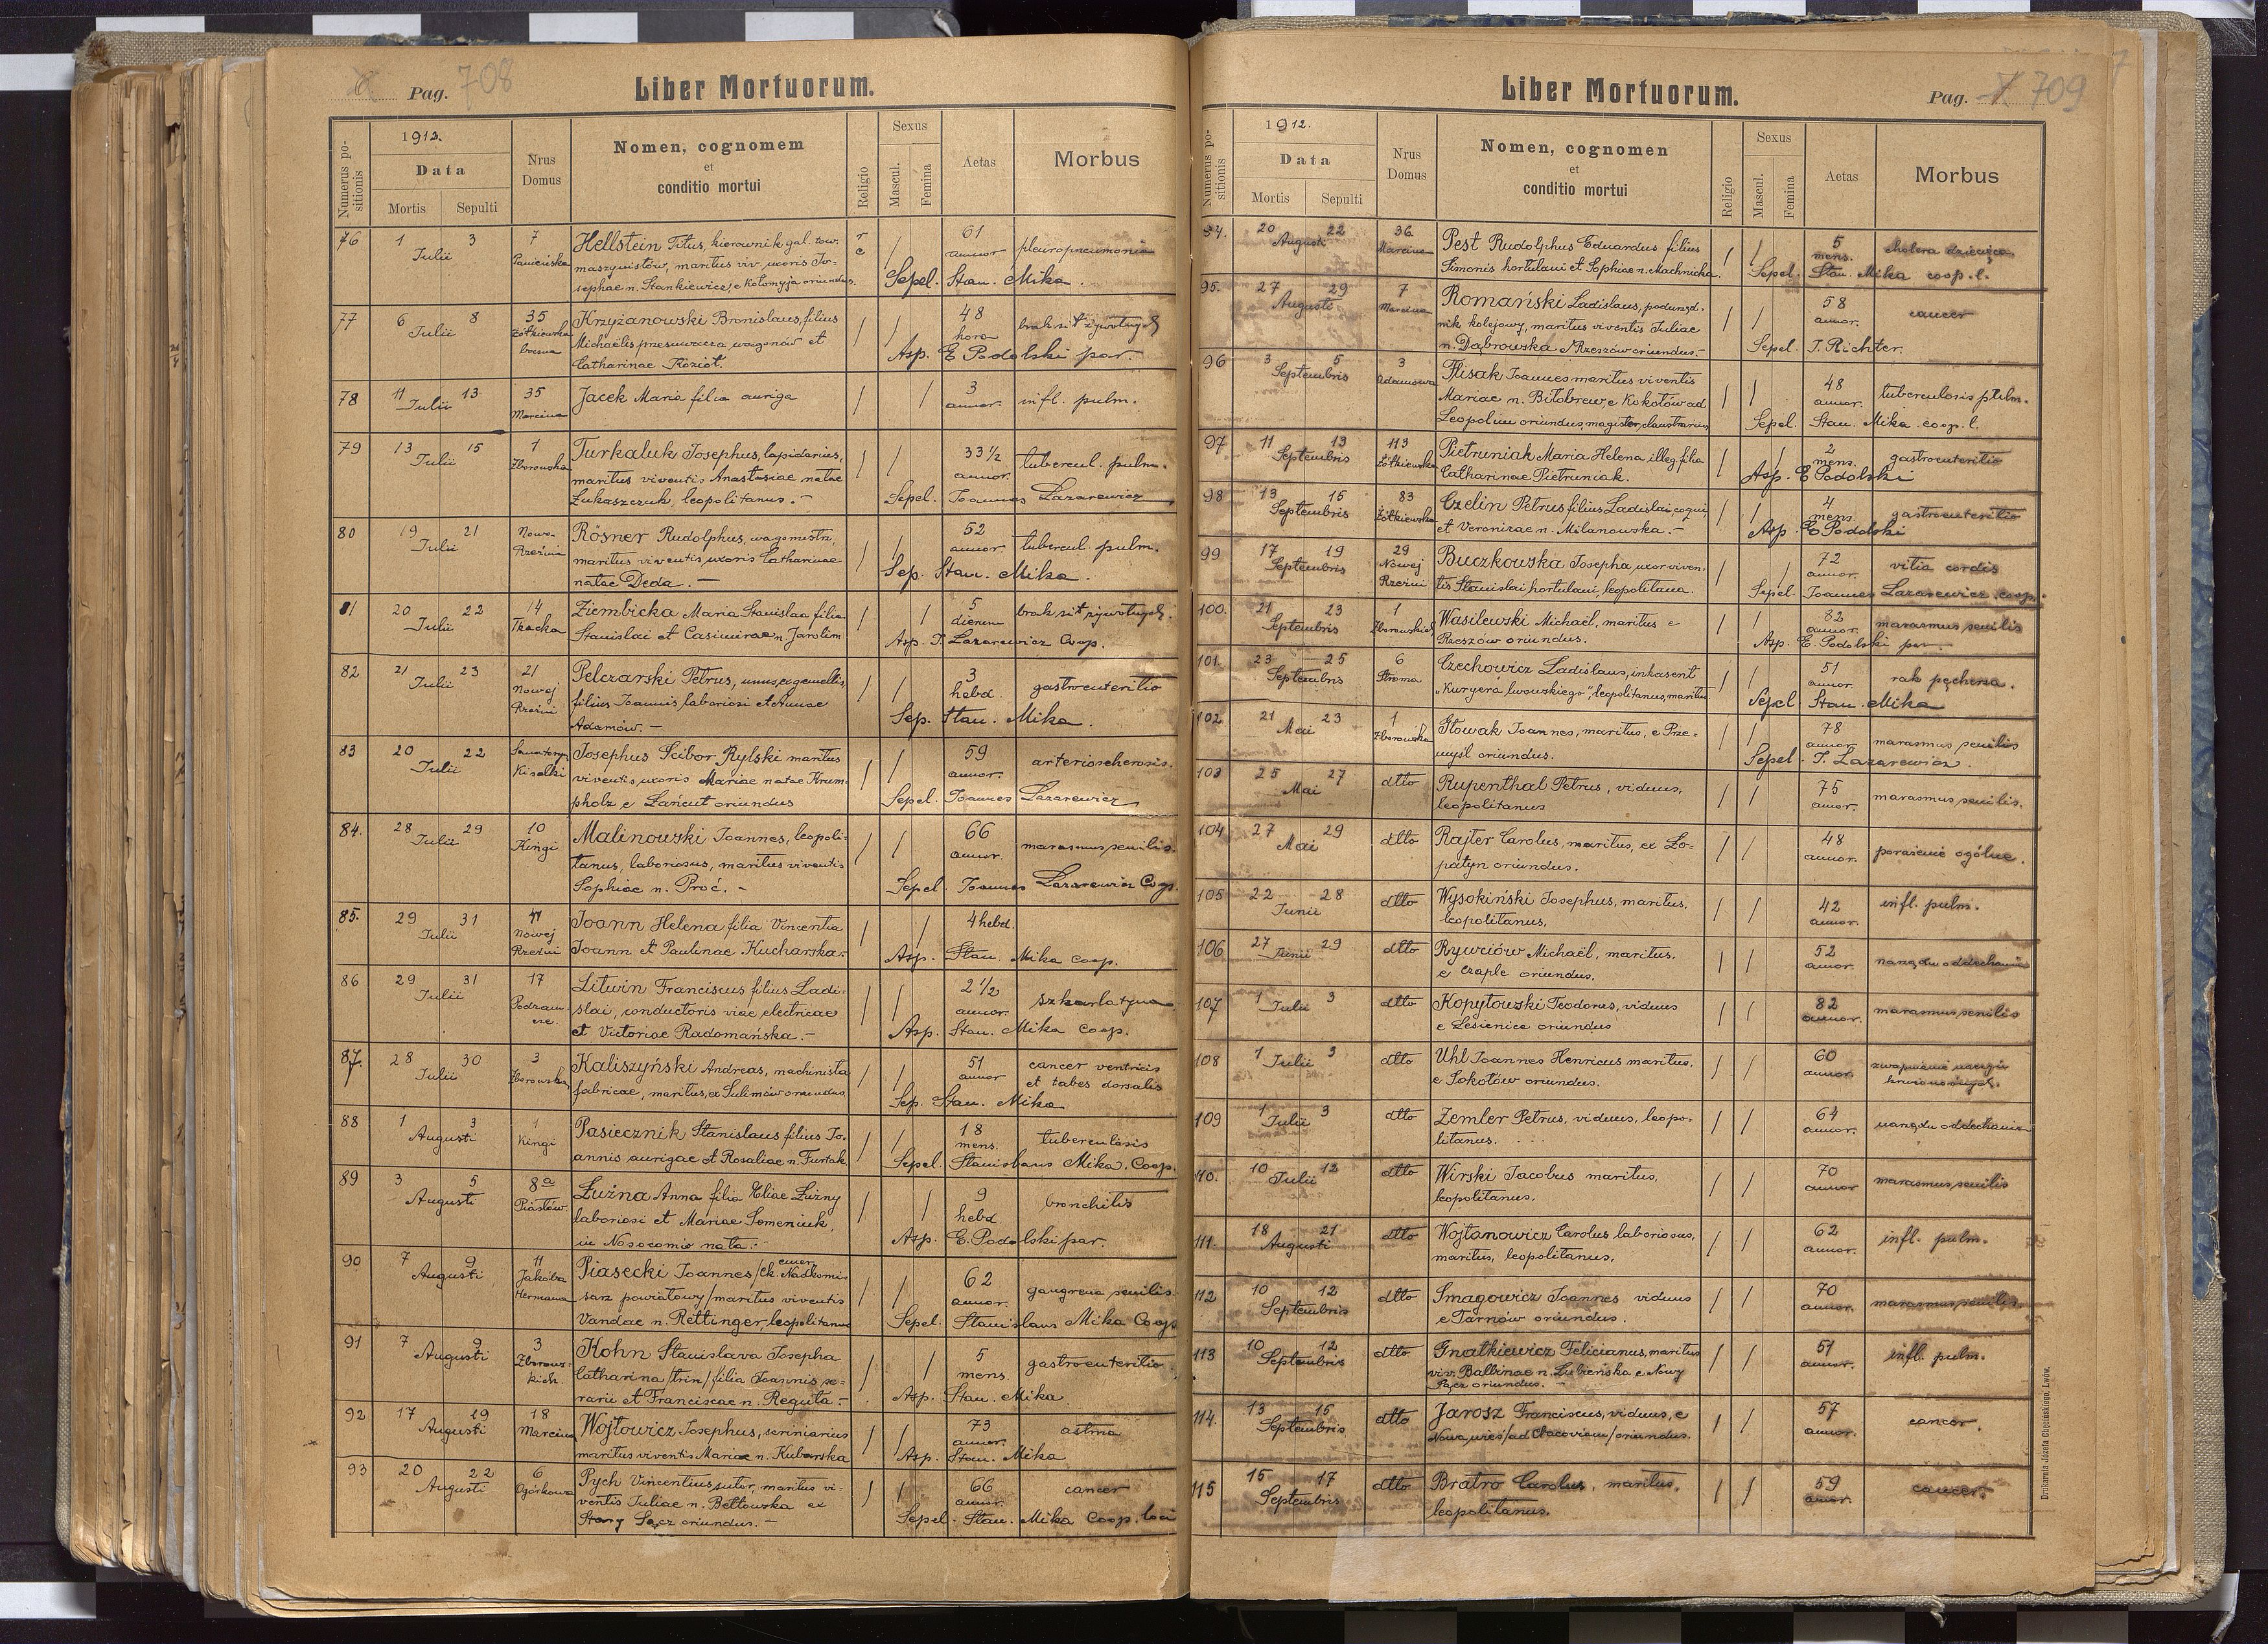 Pag. 708
Liber Mortuorum.
Numerus positionis
1912.
Data
Mortis
Sepulti
Nrus Domus
Nomen, cognomem
et
conditio mortui
Religio
Sexus
Mascul.
Femina
Aetas
Morbus
76 1 Julii 3 7 Panieńska
Hellstein Titus, kierownik gal. tow.
maszynistów, maritus viv. uxoris Jo-
sephae n. Stankiewicz, e Kołomyja oriundus.
r c
61 annor. pleuropneumonia
Sepel. Stan. Mika.
77 6 Julii 8 35 Żółkiewska
Krzyżanowski Bronislaus, filius
Michaëlis przesuwacza wagonów et
Catharinae Kozioł.
48 hora brak sił żywotnych
Asp. E Podolski par.
78 11 Julii 13 35 Marcina
Jacek Maria filia auriga
3 annor. infl. pulm.
79 13 Julii 15 1 Zborowska
Turkaluk Josephus, lapidarius,
maritus viventis Anastasiae natae
Łukaszczuk, leopolitanus. -
33 1/2 annor. tubercul. pulm.
Sepel. Joannes Lazarewicz
80 19 Julii 21 Nowa Rzeźnia
Rösner Rudolphus, wagomistr,
maritus viventis uxoris Catharinae
natae Deda. -
52 annor. tubercul. pulm.
Sep. Stan. Mika.
81 20 Julii 22 14 Tkacka
Ziembicka Maria Stanislaa filia
Stanislai et Casimirae n. Jarolim
5 dierum brak sił żywotnych.
Asp. J. Lazarewicz Coop.
82 21 Julii 23 21 Nowej Rzeźni
Pelczarski Petrus, unus ex gemellis,
filius Joannis, laboriosi et Annae
Adamów. -
3 hebd. gastroenteritis
Sep. Stan. Mika.
83 20 Julii 22 Kisielki
Josephus Ścibor Rylski maritus
viventis, uxoris Mariae natae Krum-
pholz e Łańcut oriundus
59 annor. arterioscherosis.
Sepel. Joannes Lazarewicz
84. 28 Julii 29 10 Kingi
Malinowski Joannes, leopoli-
tanus, laboriosus, maritus viventis
Sophiae n. Proć. -
66 annor. marasmus senilis.
Sepel. Joannes Lazarewicz Coop.
85. 29 Julii 31 Nowej Rzeźni
Joann Helena filia Vincentia
Joann et Paulinae Kucharska.
4 hebd.
Asp. Stan. Mika coop.
86 29 Julii 31 17 Podzamcze
Litwin Franciscus filius Ladi-
slai, conductoris viae electricae
et Victoriae Radomańska. -
2 1/2 annor. szkarlatyna
Asp. Stan. Mika coop.
87. 28 Julii 30 3 Zborowska
Kaliszyński Andreas, machinista
fabricae, maritus, ex Sulimów oriundus
51 annor cancer ventricis
et tabes dorsalis
Sep. Stan. Mika
88 1 Augusti 3 1 Kingi
Pasiecznik Stanislaus filius Jo-
annis aurigae et Rosaliae n. Furtak.
18 mens. tuberculosis
Sepel. Stanislaus Mika. Coop.
89 3 Augusti 5 8a Piastów
Łużna Anna filia Eliae Łużny
laboriosi et Mariae Someniuk,
in Nosocomio nata. -
9 hebd. bronchitis
Asp. E. Podolski par.
90 7 Augusti 9 11 Jakóba Hermana
Piasecki Joannes /ck. emer. Nadkomi-
sarz powiatowy/ maritus viventis
Vandae n. Rettinger, leopolitanus
62 annor. gangrena senilis.
Sepel. Stanislaus Mika Coop
91 7 Augusti 9 3 Zborowskich.
Kohn Stanislava Josepha
Catharina /trin/ filia Joannis se-
rarii et Franciscae n. Reguła. -
5 mens. gastroenteritis.
Asp. Stan. Mika
92 17 Augusti 19 18 Marcina
Wojtowicz Josephus, scriniarius
maritus viventis Mariae n. Kuberska
73 annor. astma
Asp. Stan. Mika
93 20 Augusti 22 6 Ogórkowa
Pych Vincentius sutor, maritus vi-
ventis Juliae n. Bełtowska ex
Stary Sącz oriundus. -
66 annor. cancer
Sepel. Stan. Mika Coop. loci
Liber Mortuorum.
Pag. 709
Numerus positionis
1912.
Data
Mortis
Sepulti
Nrus Domus
Nomen, cognomen
et
conditio mortui
Religio
Sexus
Mascul.
Femina
Aetas
Morbus
94. 20 Augusti 22 36 Marcina
Pest Rudolphus Eduardus filius
Simonis hortulani et Sophiae n. Machnicka.
5 mens. cholera dziecięca
Sepel. Stan. Mika coop. l.
95. 27 Augusti 29 7 Marcina
Romański Ladislaus, podurzęd-
nik kolejowy, maritus viventis Juliae
n. Dąbrowska e Rzeszów oriundus. -
58 annor. cancer
Sepel. J. Richter.
96 3 Septembris 5 3 Adamowa
Flisak Joannes maritus viventis
Mariae n. Bitobrew, e Kokotów ad
Leopolim oriundus, magister claustrarius
48 annor. tuberculosis pulm.
Sepel. Stan. Mika. coop. l.
97 11 Septembris 13 113 Żółkiewska
Pietruniak Maria Helena illeg. filia
Catharinae Pietruniak.
2 mens. gastroenteritis
Asp. E Podolski
98 13 Septembris 15 83 Żółkiewska
Czelin Petrus filius Ladislai coqui,
et Veronicae n. Milanowska. -
4 mens. gastroenteritis
Asp. E Podolski
99 17 Septembris 19 29 Nowej Rzeźni
Buczkowska Josepha uxor viven-
tis Stanislai hortulani, leopolitana.
72 annor. vitia cordis
Sepel. Joannes Lazarewicz coop.
100. 21 Septembris 23 1 Zborowskich
Wasilewski Michaël, maritus e
Rzeszów oriundus.
82 annor. marasmus senilis
Asp. E. Podolski par.
101 23 Septembris 25 6 Stroma
Czechowicz Ladislaus, inkasent
„Kuryera lwowskiego", leopolitanus, maritus
51 annor. rak pęcherza.
Sepel Stan. Mika
102 21 Mai 23 1 Zborowska
Słowak Joannes, maritus, e Prze-
myśl oriundus.
78 annor. marasmus senilis
Sepel. J. Lazarewicz.
103 25 Mai 27 dtto
Rupenthal Petrus, viduus,
leopolitanus
75 annor. marasmus senilis.
104 27 Mai 29 dtto
Rajter Carolus, maritus, ex Ło-
patyn oriundus.
48 annor. porażenie ogólne.
105 22 Junii 28 dtto
Wysokiński Josephus, maritus,
leopolitanus.
42 annor. infl. pulm.
106 27 Junii 29 dtto
Rywciów Michaël, maritus,
e Czaple oriundus.
52 annor. narządu oddechania
107 1 Julii 3 dtto
Kopytowski Teodorus, viduus
e Lesienice oriundus
82 annor. marasmus senilis
108 1 Julii 3 dtto
Uhl Joannes Henricus maritus,
e Sokołów oriundus.
60 annor. zwapnienie naczyń
krwionośnych.
109 1 Julii 3 dtto
Zemler Petrus, viduus, leopo-
litanus.
64 annor. narządu oddechania
110. 10 Julii 12 dtto
Wirski Jacobus maritus,
leopolitanus.
70 annor marasmus senilis
111. 18 Augusti 21 dtto
Wojtanowicz Carolus laboriosus,
maritus, leopolitanus.
62 annor. infl. pulm.
112 10 Septembris 12 dtto
Smagowicz Joannes viduus
e Tarnów oriundus.
70 annor. marasmus senilis.
113 10 Septembris 12 dtto
Gnatkiewicz Felicianus, maritus
viv. Balbinae n. Lubieńska e Nowy
Sącz oriundus. -
51 annor. infl. pulm.
114. 13 Septembris 15 dtto
Jarosz Franciscus, viduus, e
Nowa wieś /ad Cracoviam/ oriundus.
57 annor. cancer.
115 15 Septembris 17 dtto
Bratro Carolus, maritus,
leopolitanus.
59 annor. cancer.
Drukarnia Józefa Chęcińskiego, Lwów.